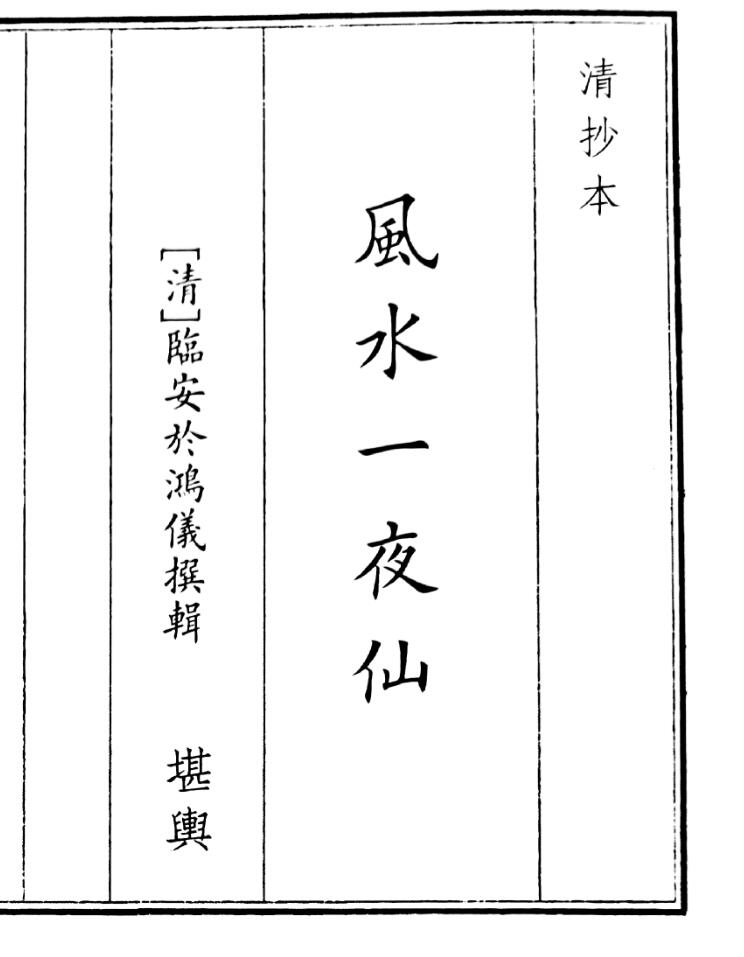 清抄本
風水一夜仙
[清]臨安於鴻儀撰輯 堪輿